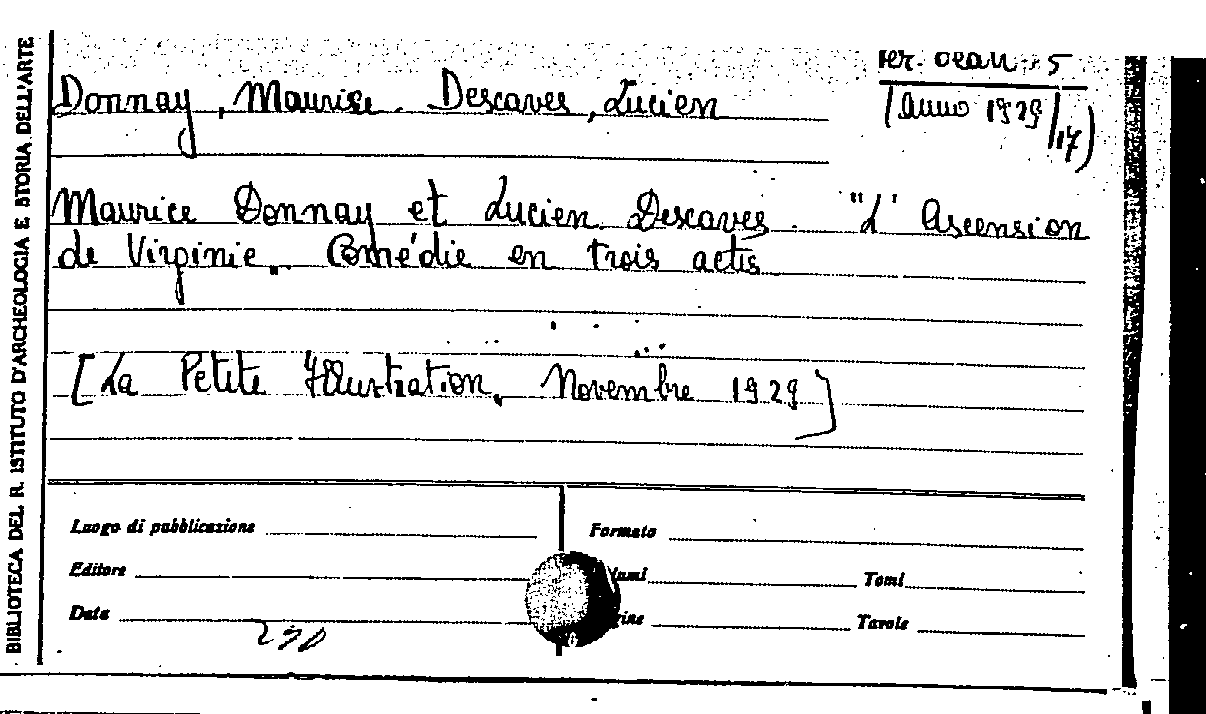 BIBLIOTECA DEL R. ISTITUTO D'ARCHEOLOGIA E STORIA DELL'ARTE
5
(Anno 1929/17)
Donnay, Maurice. Descaves, Lucien
Maurice Donnay et Lucien Descaves. "L'Ascension
de Virginie. Comédie en trois actes
[La Petite Illustration, Novembre 1929]
Luogo di pubblicazione Formato
Editore Tomi
Data Tavole